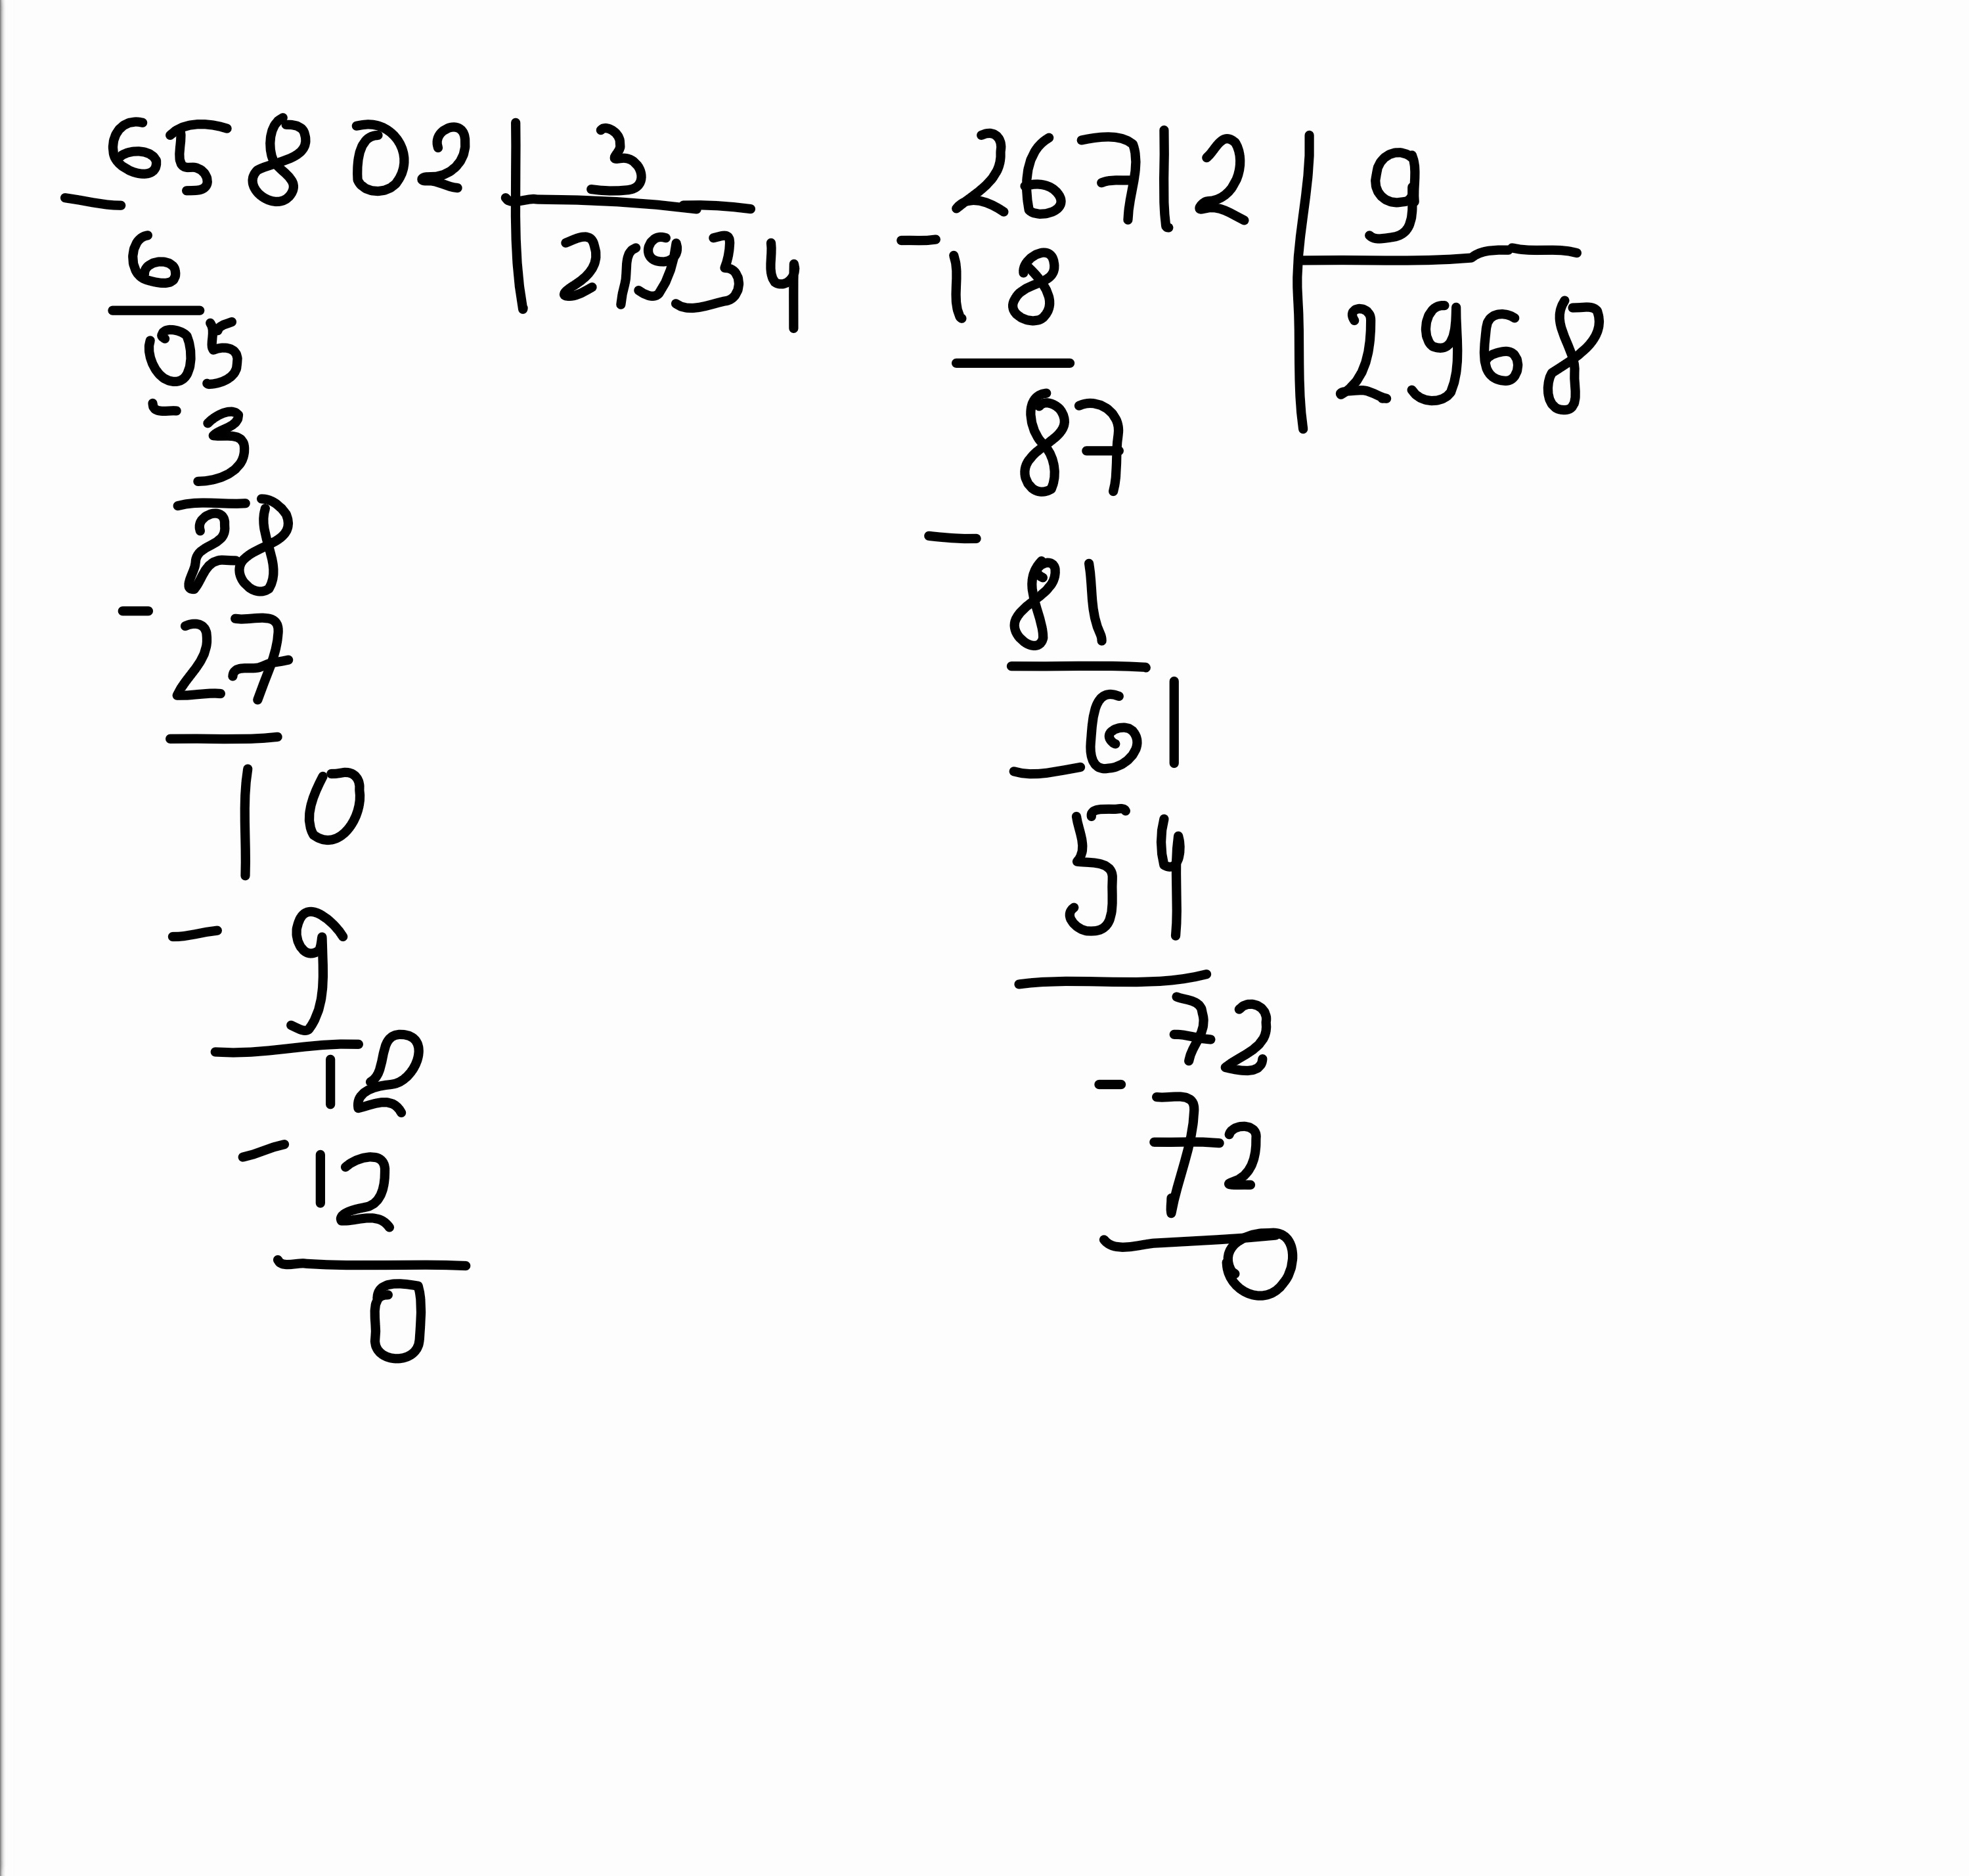 65802 3
- 6 21934
05
- 3
28
- 27
10
- 9
12
- 12
0
26712 9
- 18 2968
87
- 81
61
- 54
72
- 72
0